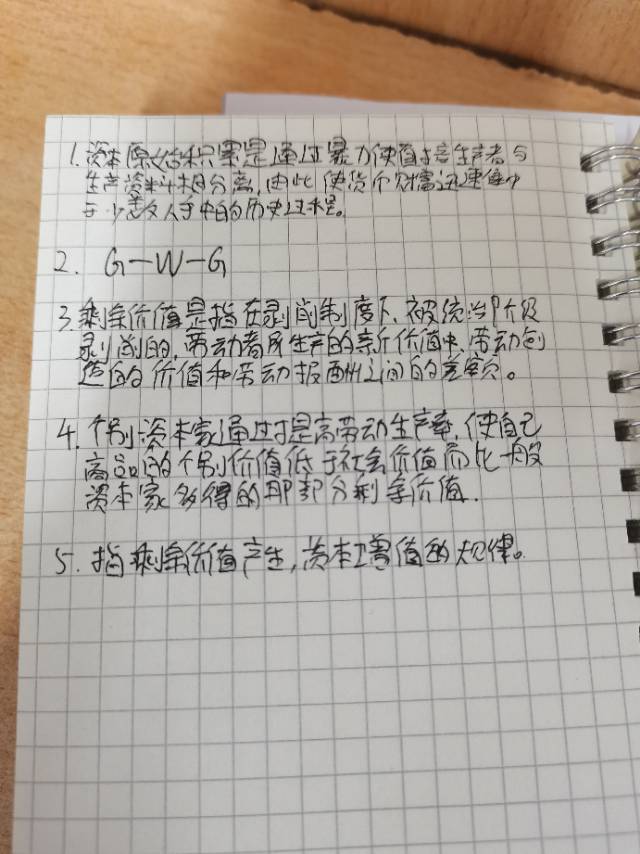 1. 资本原始积累是通过暴力使直接生产者与
生产资料相分离,由此使货币财富迅速集中
于少数人手中的历史过程。
2. G—W—G
3. 剩余价值是指在剥削制度下,被统治阶级
剥削的,劳动者所生产的新价值中,劳动创
造的价值和劳动报酬之间的差额。
4. 个别资本家通过提高劳动生产率,使自己
商品的个别价值低于社会价值而比一般
资本家多得的那部分剩余价值.
5. 指剩余价值产生,资本增值的规律。